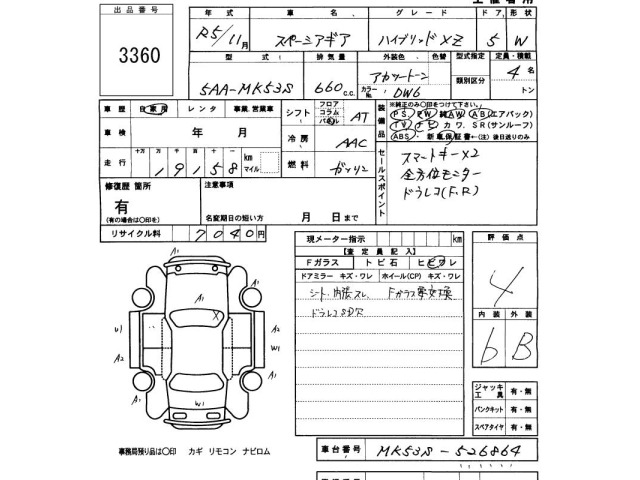 出品番号
3360
年式 車名 グレード ドア 形状
R5/11月 スペーシアギア ハイブリッドXZ 5 W
型式 排気量 外装色 色替 型式指定 定員・積載
5AA-MK53S 660c.c. アカツートン カラーNo. DW6 類別区分 4名 トン
車歴 自家用 レンタ 事業.営業車
シフト フロア コラム パネル AT
装備品
※純正のみ〇印をつけて下さい。
PS PW 純AW AB(エアバック)
TV ナビ カワ. SR(サンルーフ)
ABS・新車保証書←(注)後日送りのみ
車検 年 月
冷房 AAC
走行 十万 万 千 百 十 一 19158 km マイル
燃料 ガソリン
セールスポイント
スマートキー×2
全方位モニター
ドラレコ(F,R)
修復歴 箇所
有
(有の場合は〇印を)
注意事項
名変期日の短い方 月 日まで
リサイクル料 7040円
現メーター指示 km
評価点
4
【査定員記入】
Fガラス トビ石 ヒビワレ
ドアミラー キズ・ワレ ホイール(CP) キズ・ワレ
シート、内張スレ、 Fガラス要交換
ドラレコSD欠
内装 外装
6 B
A1
A1
U1 X A2
A2 A1
A1 W1 A1
ジャッキ工具 有・無
パンクキット 有・無
スペアタイヤ 有・無
事務局預り品は〇印 カギ リモコン ナビロム
車台番号 MK53S-526864